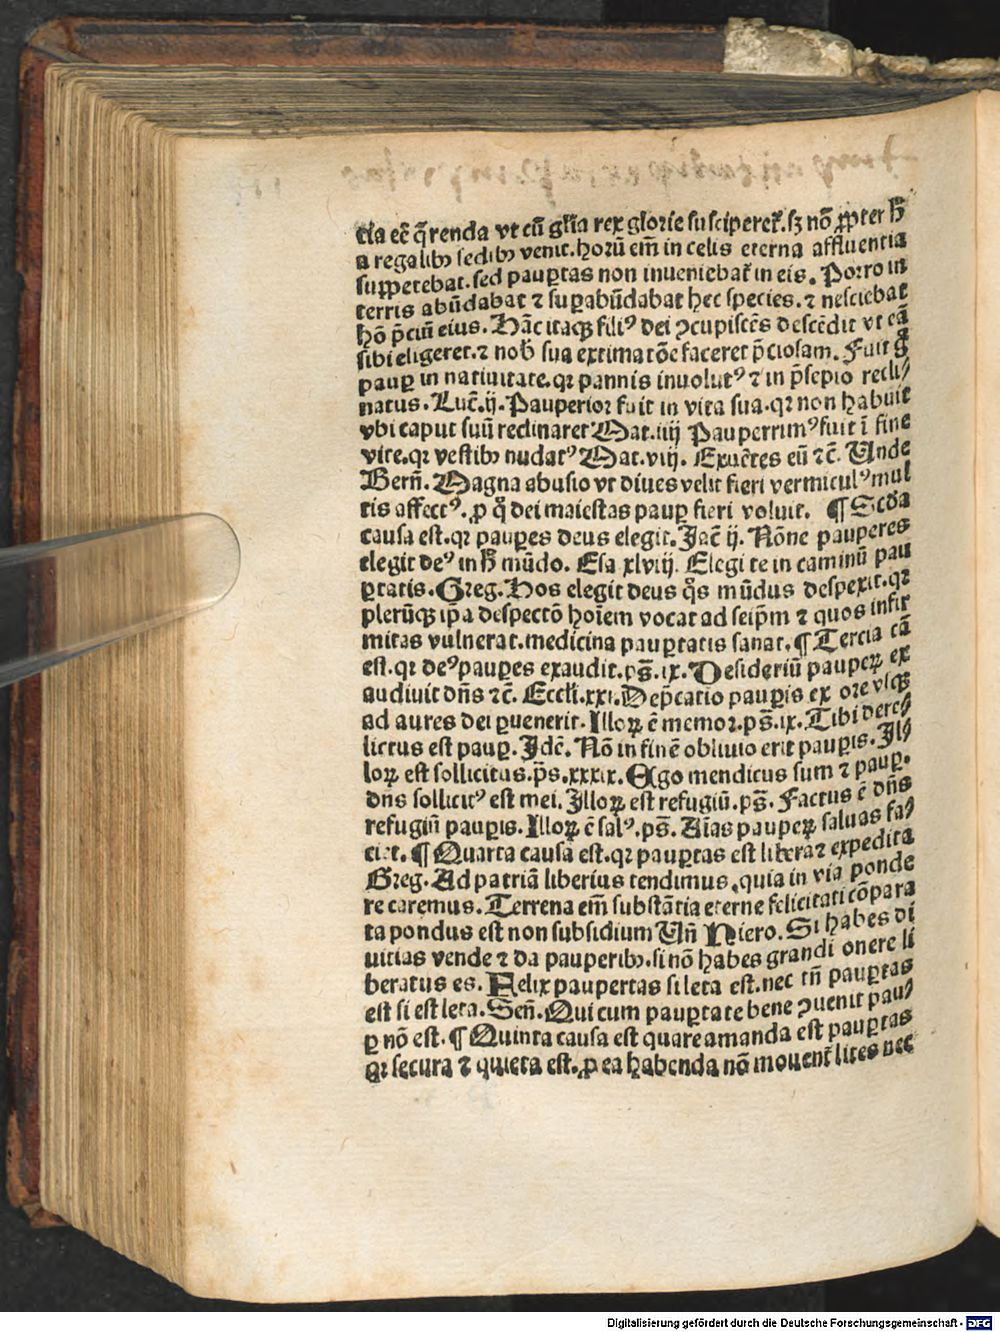 tia eē q̄renda vt cū gl̄ia rex glorie susciperet᷑.sȝ nō ꝓpter h̄
a regalibꝫ sedibꝫ venit.horū em̄ in celis eterna affluentia
suppetebat.sed paup̱tas non inueniebat᷑ in eis. Porro in
terris abūdabat ⁊ sup̱abūdabat hec species.⁊ nesciebat
hō p̄ciū eius. Hāc itaqꝫ filiꝰ dei ꝯcupiscēs descēdit vt eā
sibi eligeret.⁊ nob̄ sua extimatōe faceret p̄ciosam. Fuit g̊
paup̱ in natiuitate.qꝛ pannis inuolutꝰ ⁊ in p̄sepio recli⸗
natus. Luc̄.ij. Pauperior fuit in vita sua.qꝛ non habuit
vbi caput suū reclinaret Mat.iiij Pauperrimꝰ fuit ī fine
vite.qꝛ vestibꝫ nudatꝰ Mat.viij. Exuētes eū ⁊c̄. Unde
Bern̄. Magna abusio vt diues velit fieri vermiculꝰ mul
tis affectꝰ.ꝓ q̊ dei maiestas paup̱ fieri voluit. ¶ Scd̄a
causa est.qꝛ paup̱es deus elegit. Jac̄ ij. Nōne pauperes
elegit deꝰ in h̄ mūdo. Esa xlviij. Elegi te in caminū pau
p̱tatis. Greg. Hos elegit deus q̊s mūdus despexit.qꝛ
plerūqꝫ ip̄a despectō hoīem vocat ad seip̄m ⁊ quos infir
mitas vulnerat.medicina paup̱tatis sanat. ¶ Tercia cā
est.qꝛ deꝰ paup̱es exaudit.ps̄.ix. Desideriū pauperꝝ ex
audiuit dn̄s ⁊c̄. Eccl̄i.xxi. Dep̄catio paup̱is ex ore vsqꝫ
ad aures dei p̱uenerit. Illoꝝ ē memor.ps̄.ix. Tibi dere⸗
lictus est paup̱. Jdē. Nō in finē obliuio erit paup̱is. Jl⸗
loꝝ est sollicitus.ps̄.xxxix. Ego mendicus sum ⁊ paup̱.
dn̄s sollicitꝰ est mei. Jlloꝝ est refugiū.ps̄. Factus ē dn̄s
refugiū paup̱is. Illoꝝ ē salꝰ.ps̄. Aīas paupeꝝ saluas fa⸗
ciet. ¶ Quarta causa est.qꝛ paup̱tas est libera ⁊ expedita
Greg. Ad patriā liberius tendimus.quia in via ponde
re caremus. Terrena em̄ substātia eterne felicitati cōpara
ta pondus est non subsidium Un̄ Hiero. Si habes di
uitias vende ⁊ da pauperibꝫ.si nō habes grandi onere li
beratus es. Felix paupertas si leta est.nec tn̄ paup̱tas
est si est leta. Sen̄. Qui cum paup̱tate bene ꝯuenit pau⸗
p̱ nō est. ¶ Quinta causa est quare amanda est paup̱tas
qꝛ secura ⁊ quieta est.ꝓ ea habenda nō mouent᷑ lites nec
Digitalisierung gefördert durch die Deutsche Forschungsgemeinschaft - DFG